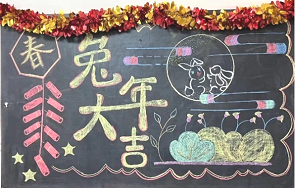 春
兔年
大吉